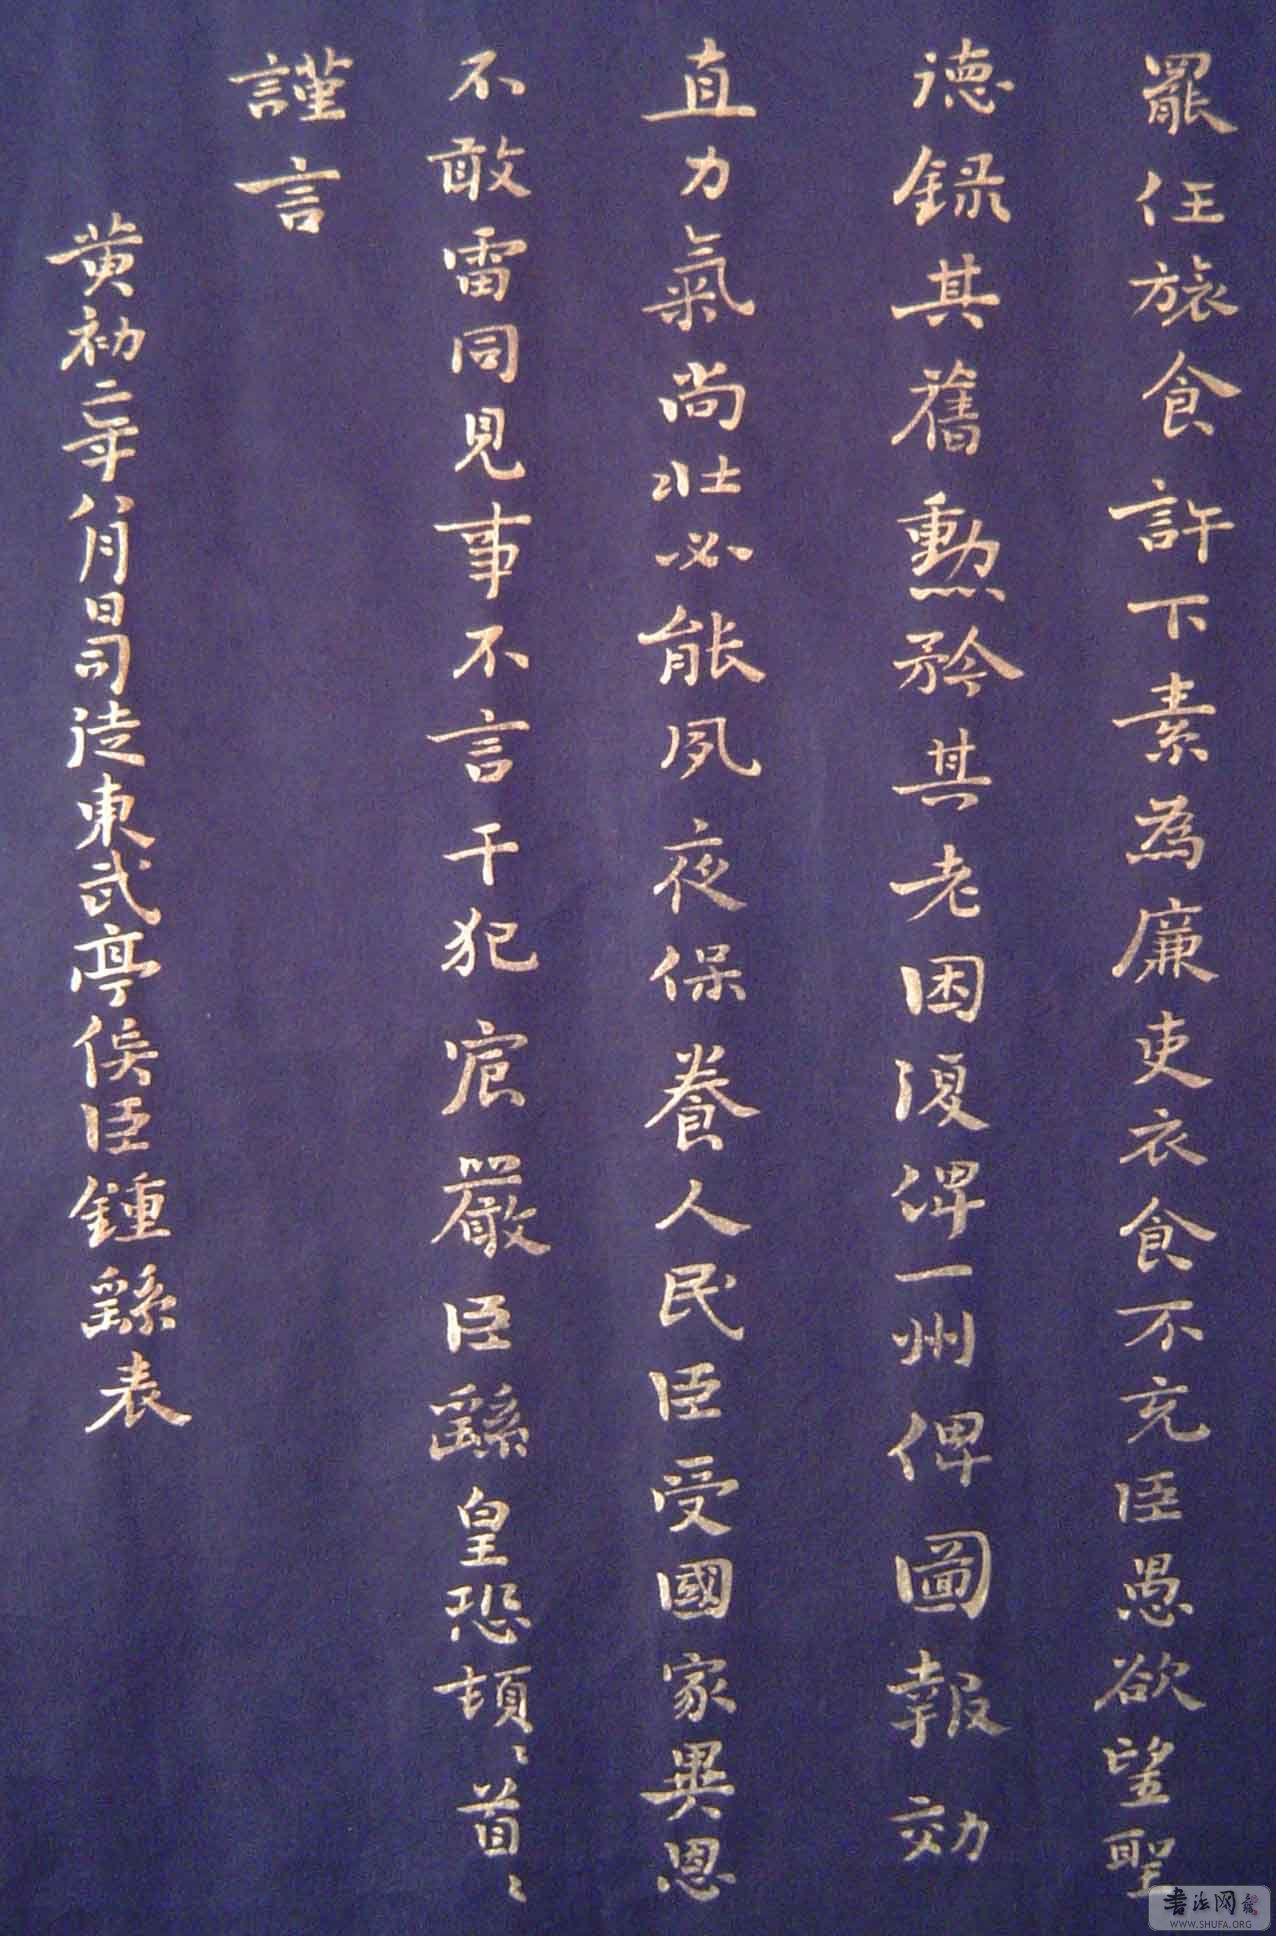 罷任旅食許下素為廉吏衣食不充臣愚欲望聖
德録其舊勳矜其老困復俾一州俾圖報効
直力氣尚壯必能夙夜保養人民臣受國家異恩
不敢雷同見事不言干犯宸嚴臣繇皇恐頓〻首〻
謹言
黄初二年八月日司徒東武亭侯臣鍾繇表
書法网
WWW.SHUFA.ORG